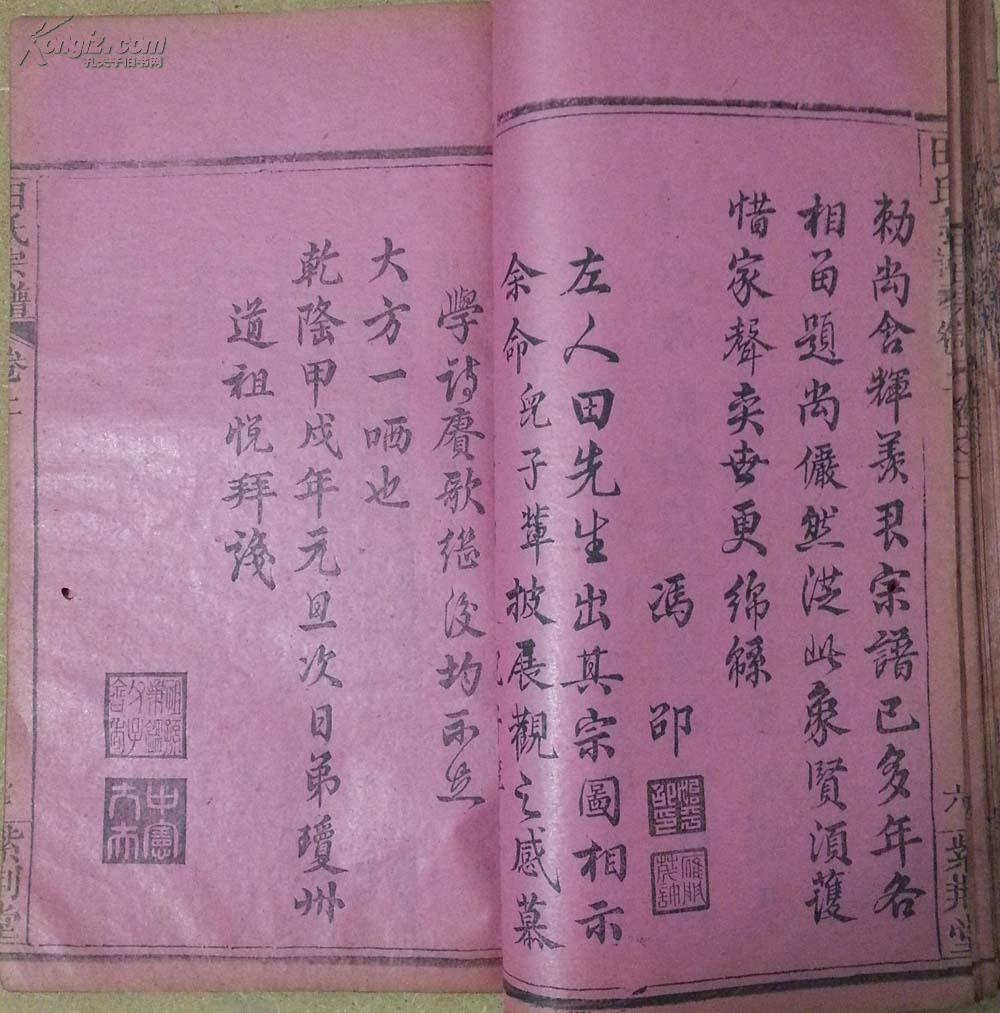 勅尚含輝羡君宗譜已多年各
相留題尚儼然從此象賢須護
惜家聲奕世更綿綿
馮邵
左人田先生出其宗圖相示
余命兒子輩披展觀之感慕
六 紫荆堂
田氏宗譜 卷二
學詩賡歌繼後均不足
大方一哂也
乾隆甲戌年元旦次日弟瓊州
道祖悅拜箋
中憲大夫
紫荆堂
Kongfz.com
孔夫子旧书网